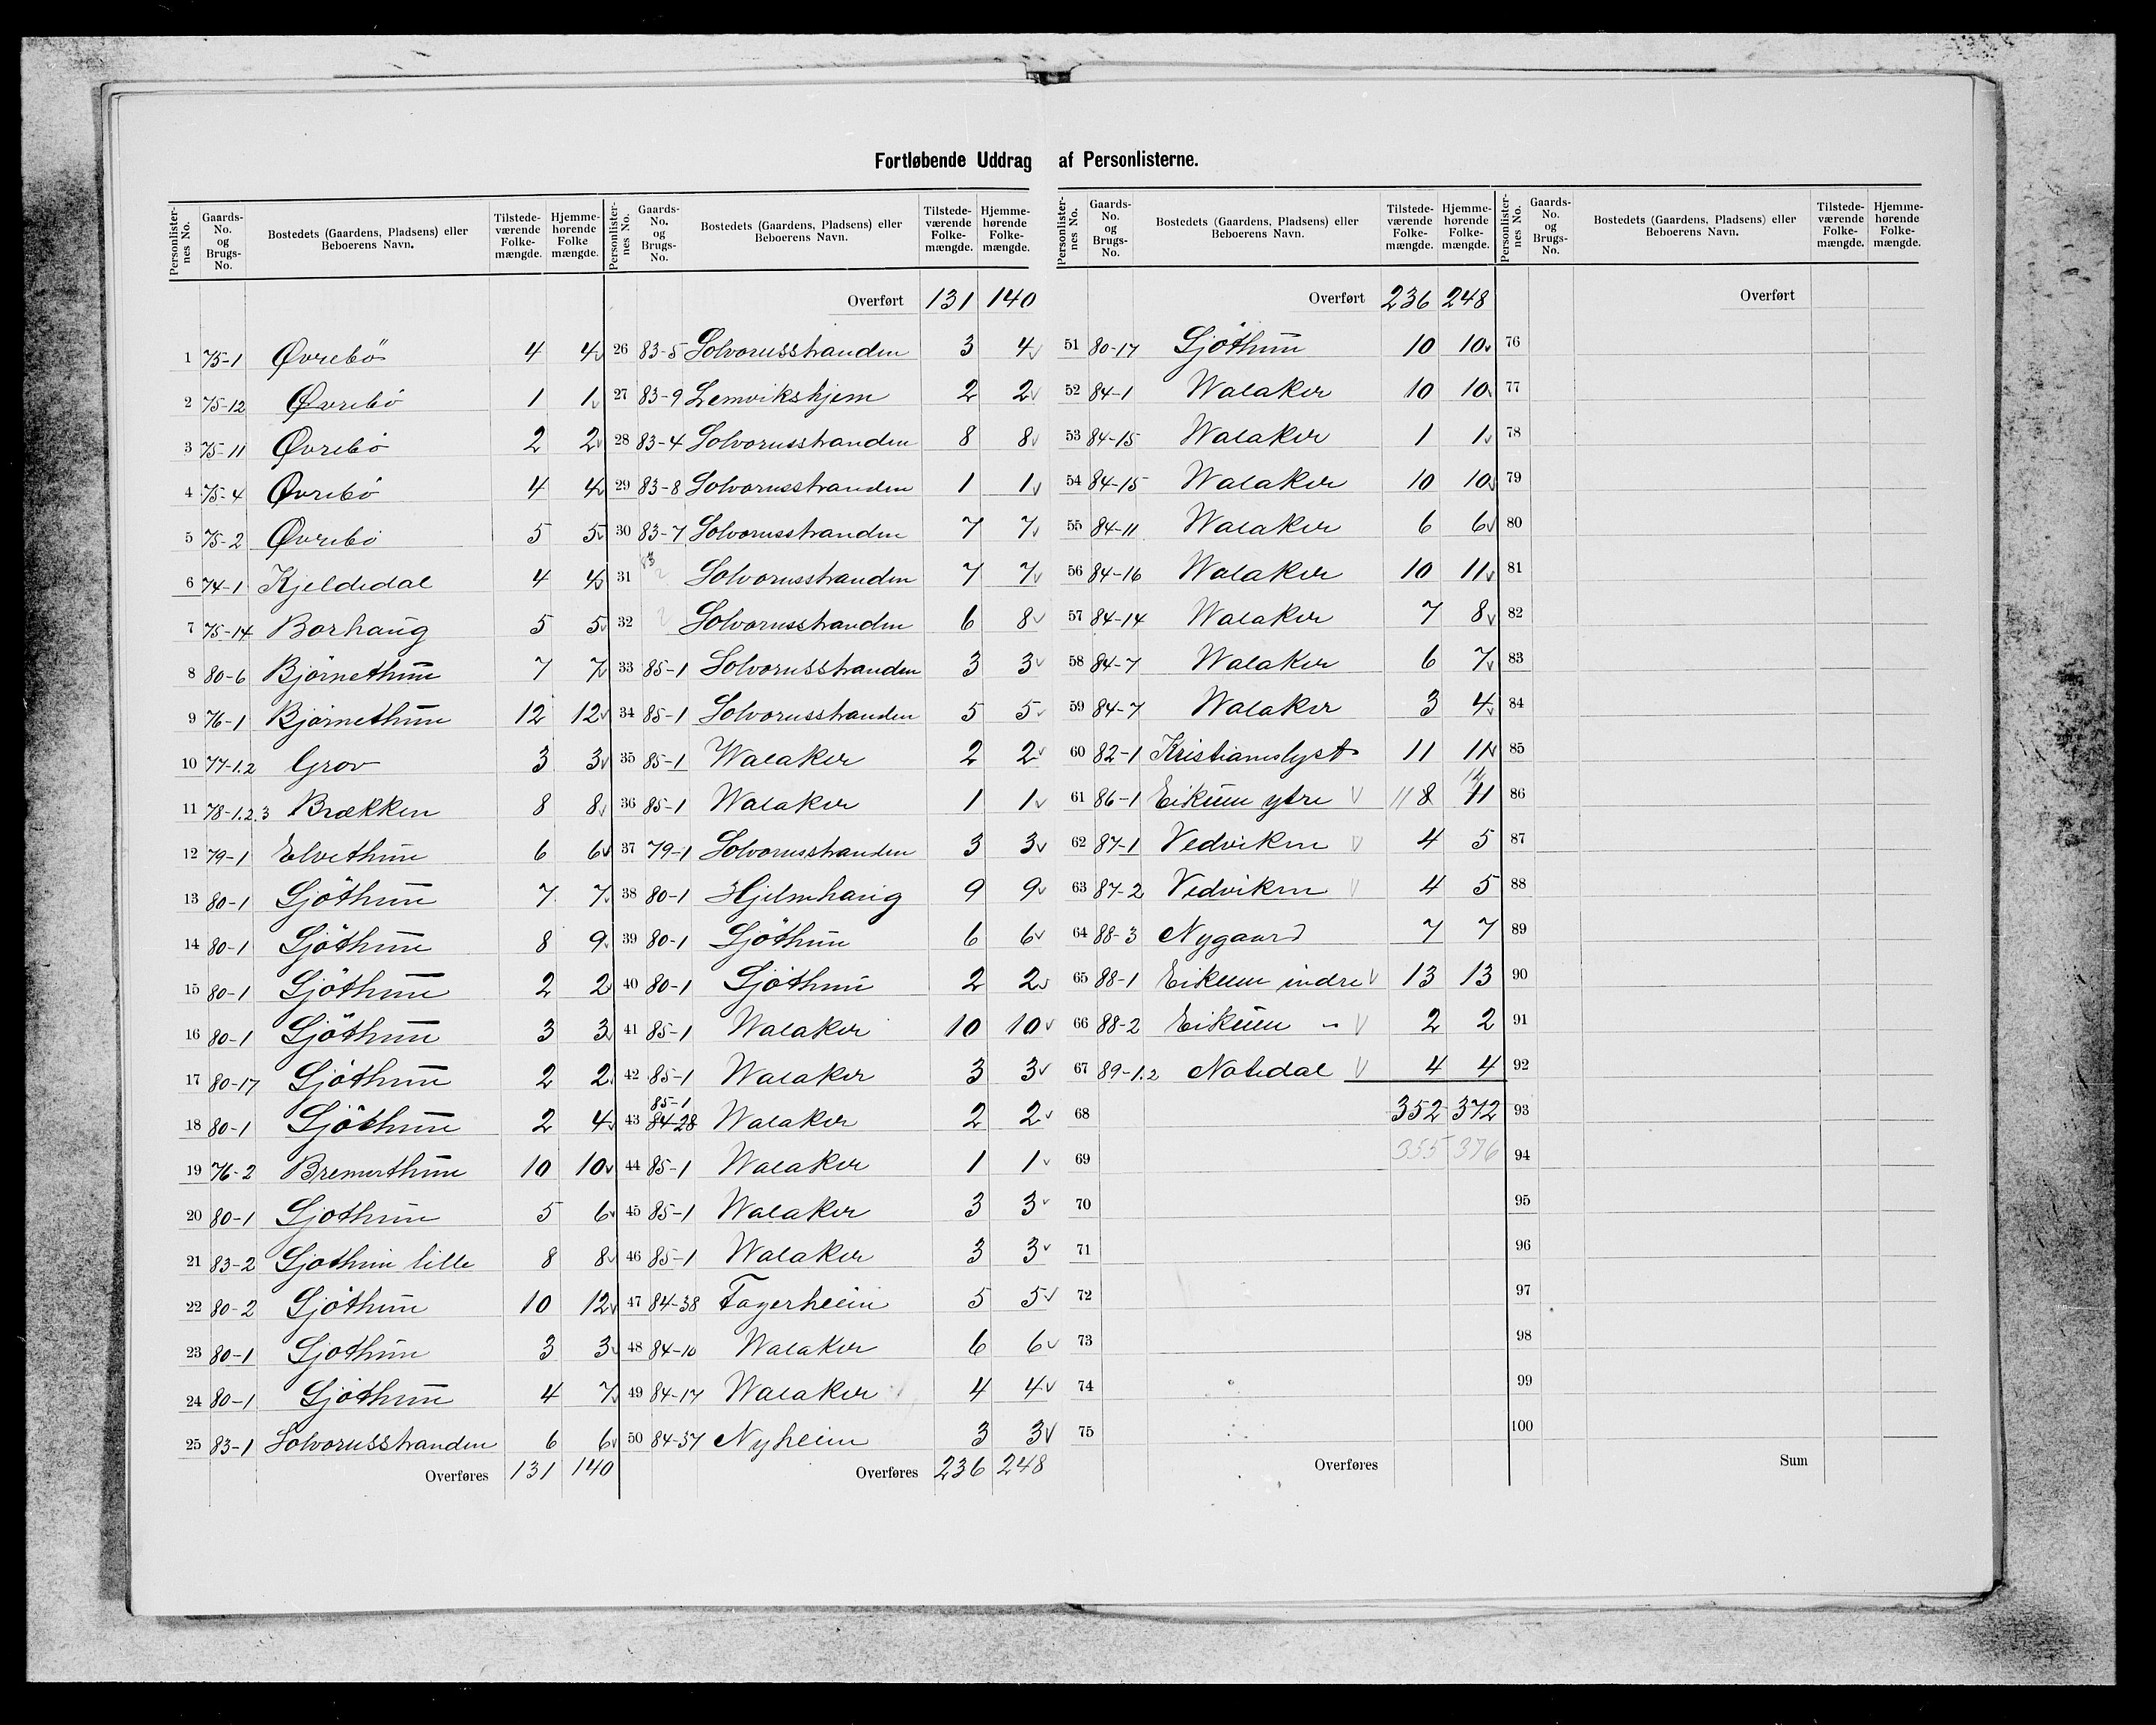 Fortløbende Uddrag af Personlisterne.
Personlister-nes No. Gaards-No. og Brugs-No. Bostedets (Gaardens, Pladsens) eller Beboerens Navn. Tilstede-værende Folke-mængde. Hjemme-hørende Folke mængde.
1 75-1 Øvrebö 4 4
2 75-12 Øvrebö 1 1
3 75-11 Øvrebö 2 2
4 75-4 Øvrebö 4 4
5 75-2 Øvrebö 5 5
6 74-1 Kjeldedal 4 4
7 75-14 Borhaug 5 5
8 80-6 Björnethun 7 7
9 76-1 Björnethun 12 12
10 77-1.2 Grov 3 3
11 78-1.2.3 Brækken 8 8
12 79-1 Elvethun 6 6
13 80-1 Sjöthun 7 7
14 80-1 Sjöthun 8 9
15 80-1 Sjöthun 2 2
16 80-1 Sjöthun 3 3
17 80-17 Sjöthun 2 2
18 80-1 Sjöthun 2 4
19 76-2 Bremerthun 10 10
20 80-1 Sjothun 5 6
21 83-2 Sjothun lille 8 8
22 80-2 Sjöthun 10 12
23 80-1 Sjothun 3 3
24 80-1 Sjöthun 4 7
25 83-1 Solvorusstranden 6 6
Overføres 131 140
Personlister-nes No. Gaards-No. og Brugs-No. Bostedets (Gaardens, Pladsens) eller Beboerens Navn. Tilstede-værende Folke-mængde. Hjemme-hørende Folke-mængde.
Overført 131 140
26 83-5 Solvorusstranden 3 4
27 83-9 Lemvikshjem 2 2
28 83-4 Solvorusstranden 8 8
29 83-8 Solvorusstranden 1 1
30 83-7 Solvorusstranden 7 7
31 83 Solvorusstranden 7 7
32 Solvorusstranden 6 8
33 85-1 Solvorusstranden 3 3
34 85-1 Solvorusstranden 5 5
35 85-1 Walaker 2 2
36 85-1 Walaker 1 1
37 79-1 Solvorusstranden 3 3
38 80-1 Hjelmhaug 9 9
39 80-1 Sjöthun 6 6
40 80-1 Sjöthun 2 2
41 85-1 Walaker 10 10
42 85-1 Walaker 3 3
85-1
43 84-28 Walaker 2 2
44 85-1 Walaker 1 1
45 85-1 Walaker 3 3
46 85-1 Walaker 3 3
47 84-38 Fagerheim 5 5
48 84-10 Walaker 6 6
49 84-17 Walaker 4 4
50 84-37 Nyheim 3 3
Overføres 236 248
Personlister-nes No. Gaards-No. og Brugs-No. Bostedets (Gaardens, Pladsens) eller Beboerens Navn. Tilstede-værende Folke-mængde. Hjemme-hørende Folke-mængde.
Overført 236 248
51 80-17 Sjöthun 10 10
52 84-1 Walaker 10 10
53 84-15 Walaker 1 1
54 84-15 Walaker 10 10
55 84-11 Walaker 6 6
56 84-16 Walaker 10 11
57 84-14 Walaker 7 8
58 84-7 Walaker 6 7
59 84-7 Walaker 3 4
60 82-1 Kristianslyst 11 11
61 86-1 Eikum ytre 11 8 11
62 87-1 Vedviken 4 5
63 87-2 Vedviken 4 5
64 88-3 Nygaard 7 7
65 88-1 Eikum indre 13 13
66 88-2 Eikum - 2 2
67 89-1.2 Notedal 4 4
68 352 372
69 355 376
70
71
72
73
74
75
Overføres
Personlister-nes No. Gaards-No. og Brugs-No. Bostedets (Gaardens, Pladsens) eller Beboerens Navn. Tilstede-værende Folke-mængde. Hjemme-hørende Folke-mængde.
Overført
76
77
78
79
80
81
82
83
84
85
86
87
88
89
90
91
92
93
94
95
96
97
98
99
100
Sum